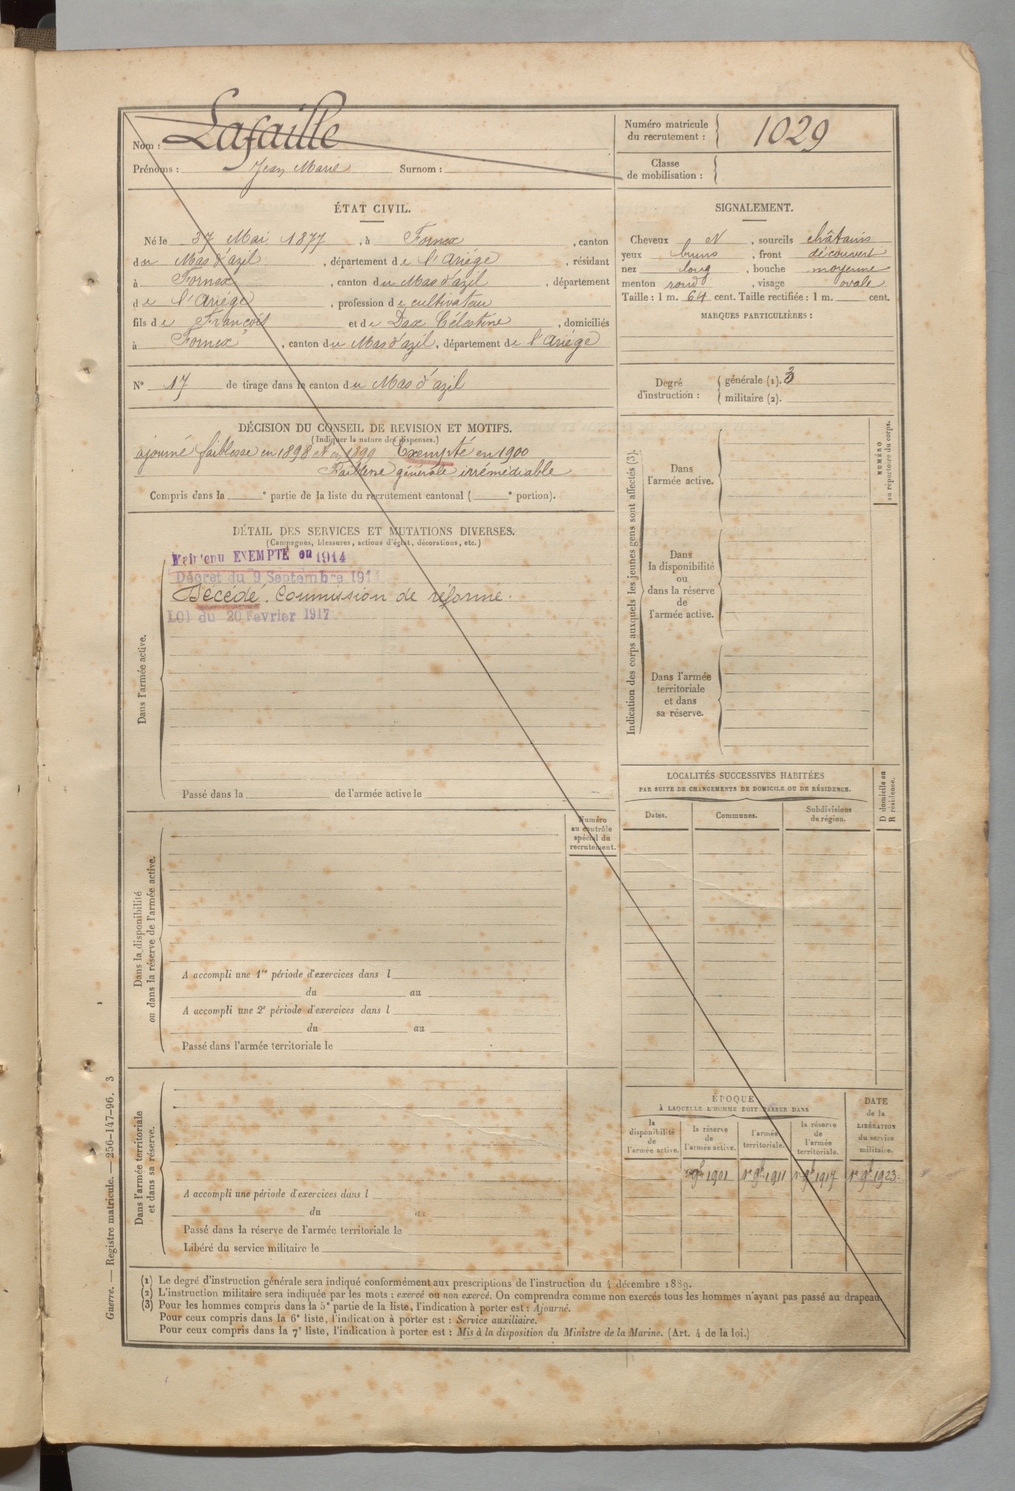 Nom : Lafaille
Prénoms : Jean Marie Surnom :
Numéro matricule
du recrutement : 1029
Classe
de mobilisation :
ÉTAT CIVIL.
Né le Mai 1877, à Fornex, canton
du Mas d'azil, département de l'Ariège, résidant
à Fornex, canton du Mas d'azil, département
de l'Ariège, profession de cultivateur
fils de François et de Dax Célestine, domiciliés
à Fornex, canton du Mas d'azil, département de l'Ariège
N° 17 de tirage dans le canton du Mas d'azil
SIGNALEMENT.
Cheveux N, sourcils châtains
yeux bruns, front découvert
nez long, bouche moyenne
menton rond, visage ovale
Taille : 1 m. 64 cent. Taille rectifiée : 1 m. cent.
MARQUES PARTICULIÈRES :
Degré
d'instruction :
générale (1). 3
militaire (2).
DÉCISION DU CONSEIL DE REVISION ET MOTIFS.
(Indiquer la nature des dispenses.)
ajourné faiblesse en 1898 et en 1899 Exempté en 1900
Faiblesse générale irrémédiable
Compris dans la e partie de la liste du recrutement cantonal ( e portion).
DÉTAIL DES SERVICES ET MUTATIONS DIVERSES.
(Campagnes, blessures, actions d'éclat, décorations, etc.)
Maintenu EXEMPTÉ en 1914
Décret du 9 Septembre 1914
Décédé. Commission de réforme.
LOI du 20 Février 1917
Dans l'armée active.
Passé dans la de l'armée active le
Indication des corps auxquels les jeunes gens sont affectés (3).
Dans
l'armée active.
Dans
la disponibilité
ou
dans la réserve
de
l'armée active.
Dans l'armée
territoriale
et dans
sa réserve.
NUMÉRO
au répertoire du corps.
LOCALITÉS SUCCESSIVES HABITÉES
PAR SUITE DE CHANGEMENTS DE DOMICILE OU DE RÉSIDENCE.
Dates. Communes. Subdivisions
de région.
D domicile ou
R résidence.
Numéro
au contrôle
spécial du
recrutement.
Dans la disponibilité
ou dans la réserve de l'armée active.
A accompli une 1re période d'exercices dans l
du au
A accompli une 2e période d'exercices dans l
du au
Passé dans l'armée territoriale le
Dans l'armée territoriale
et dans sa réserve.
A accompli une période d'exercices dans l
du au
Passé dans la réserve de l'armée territoriale le
Libéré du service militaire le
ÉPOQUE
À LAQUELLE L'HOMME DOIT PASSER DANS
la
disponibilité
de
l'armée active.
la réserve
de
l'armée active.
l'armée
territoriale.
la réserve
de
l'armée
territoriale.
DATE
de la
LIBÉRATION
du service
militaire.
9bre 1901 1er 9bre 1911 1er 9bre 1917 1er 9bre 1923.
(1) Le degré d'instruction générale sera indiqué conformément aux prescriptions de l'instruction du 4 décembre 1889.
(2) L'instruction militaire sera indiquée par les mots : exercé ou non exercé. On comprendra comme non exercés tous les hommes n'ayant pas passé au drapeau.
(3) Pour les hommes compris dans la 5e partie de la liste, l'indication à porter est : Ajourné.
Pour ceux compris dans la 6e liste, l'indication à porter est : Service auxiliaire.
Pour ceux compris dans la 7e liste, l'indication à porter est : Mis à la disposition du Ministre de la Marine. (Art. 4 de la loi.)
Guerre. — Registre matricule. — 256-147-96. 3